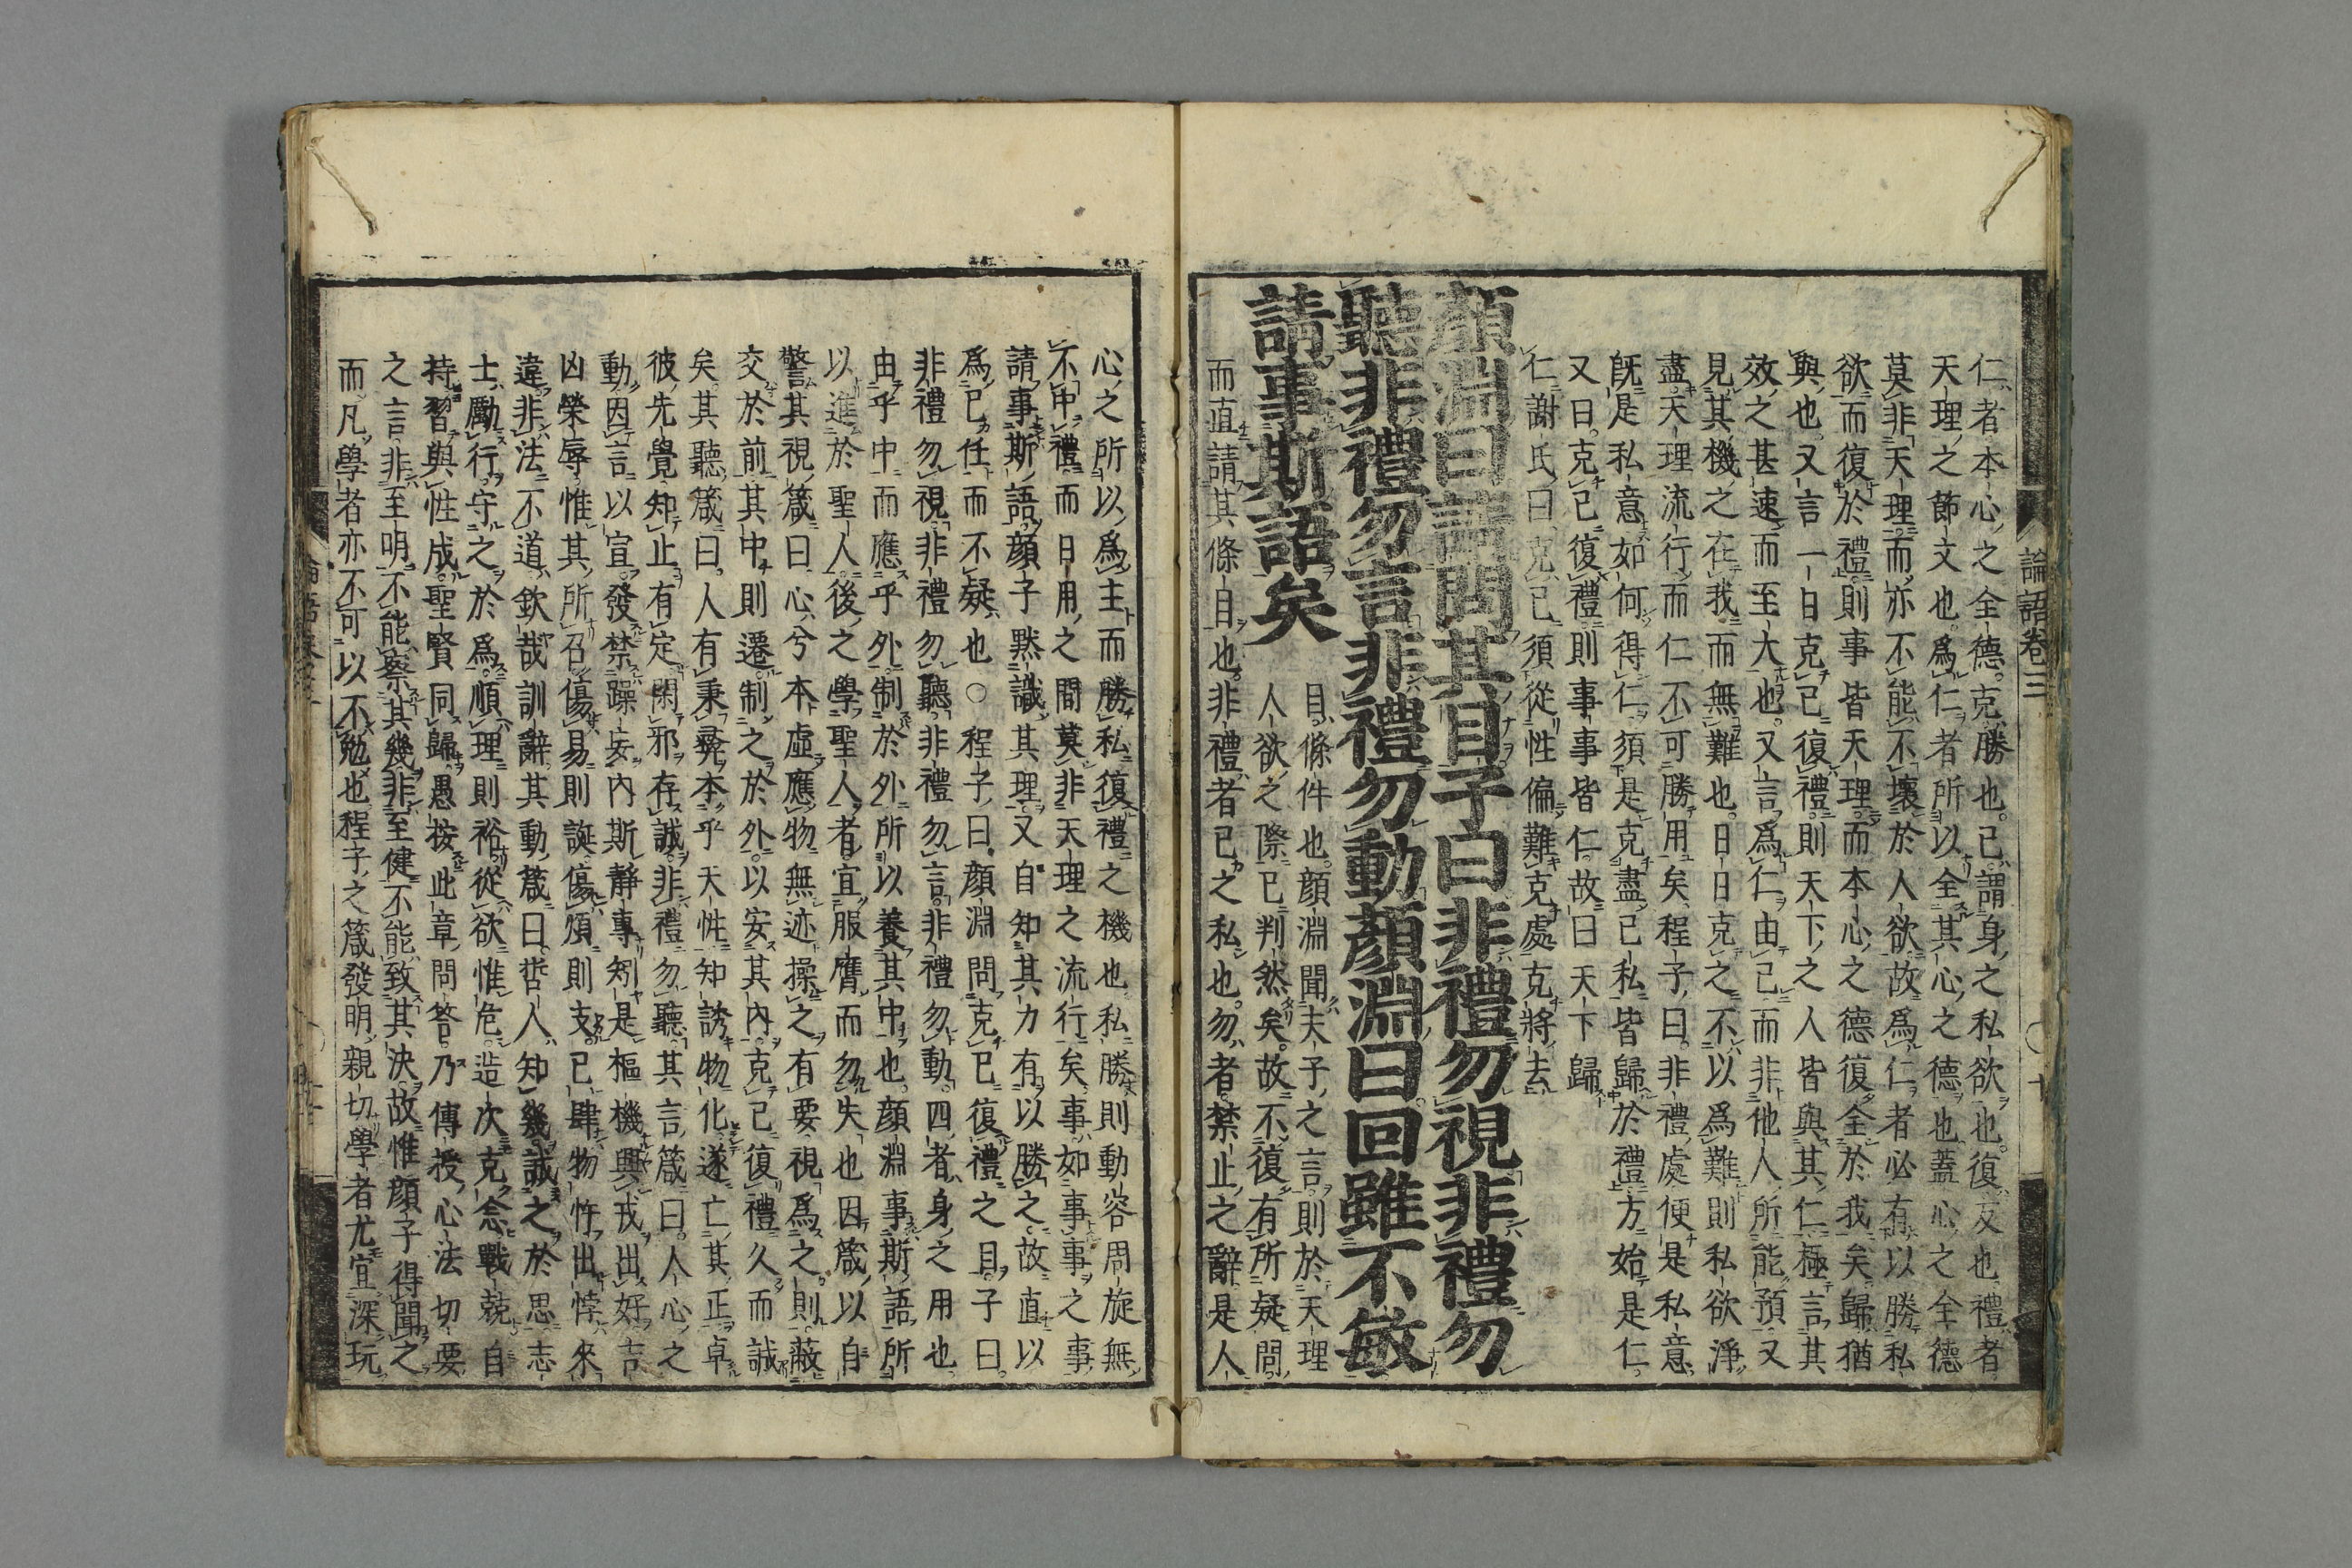 論語卷三
十
仁者本心之全德克勝也己謂身之私欲也復反也禮者
天理之節文也爲仁者所以全其心之德也蓋心之全德
莫非天理而亦不能不壞於人欲故爲仁者必有以勝私
欲而復於禮則事皆天理而本心之德復全於我矣歸猶
與也又言一日克己復禮則天下之人皆與其仁極言其
效之甚速而至大也又言爲仁由己而非他人所能預又
見其機之在我而無難也日日克之不以爲難則私欲淨
盡天理流行而仁不可勝用矣程子曰非禮處便是私意
旣是私意如何得仁須是克盡己私皆歸於禮方始是仁
又曰克己復禮則事事皆仁故曰天下歸
仁謝氏曰克己須從性偏難克處克將去
顏淵曰請問其目子曰非禮勿視非禮勿
聽非禮勿言非禮勿動顏淵曰回雖不敏
請事斯語矣
目條件也顏淵聞夫子之言則於天理
人欲之際已判然矣故不復有所疑問
而直請其條目也非禮者己之私也勿者禁止之辭是人
心之所以爲主而勝私復禮之機也私勝則動容周旋無
不中禮而日用之間莫非天理之流行矣事如事事之事
請事斯語顏子默識其理又自知其力有以勝之故直以
爲己任而不疑也○程子曰顏淵問克己復禮之目子曰
非禮勿視非禮勿聽非禮勿言非禮勿動四者身之用也
由乎中而應乎外制於外所以養其中也顏淵事斯語所
以進於聖人後之學聖人者宜服膺而勿失也因箴以自
警其視箴曰心兮本虛應物無迹操之有要視爲之則蔽
交於前其中則遷制之於外以安其內克己復禮久而誠
矣其聽箴曰人有秉彝本乎天性知誘物化遂亡其正卓
彼先覺知止有定閑邪存誠非禮勿聽其言箴曰人心之
動因言以宣發禁躁妄內斯靜專矧是樞機興戎出好吉
凶榮辱惟其所召傷易則誕傷煩則支己肆物忤出悖來
違非法不道欽哉訓辭其動箴曰哲人知幾誠之於思志
士勵行守之於爲順理則裕從欲惟危造次克念戰兢自
持習與性成聖賢同歸愚按此章問答乃傳授心法切要
之言非至明不能察其幾非至健不能致其決故惟顏子得聞之
而凡學者亦不可以不勉也程子之箴發明親切學者尤宜深玩